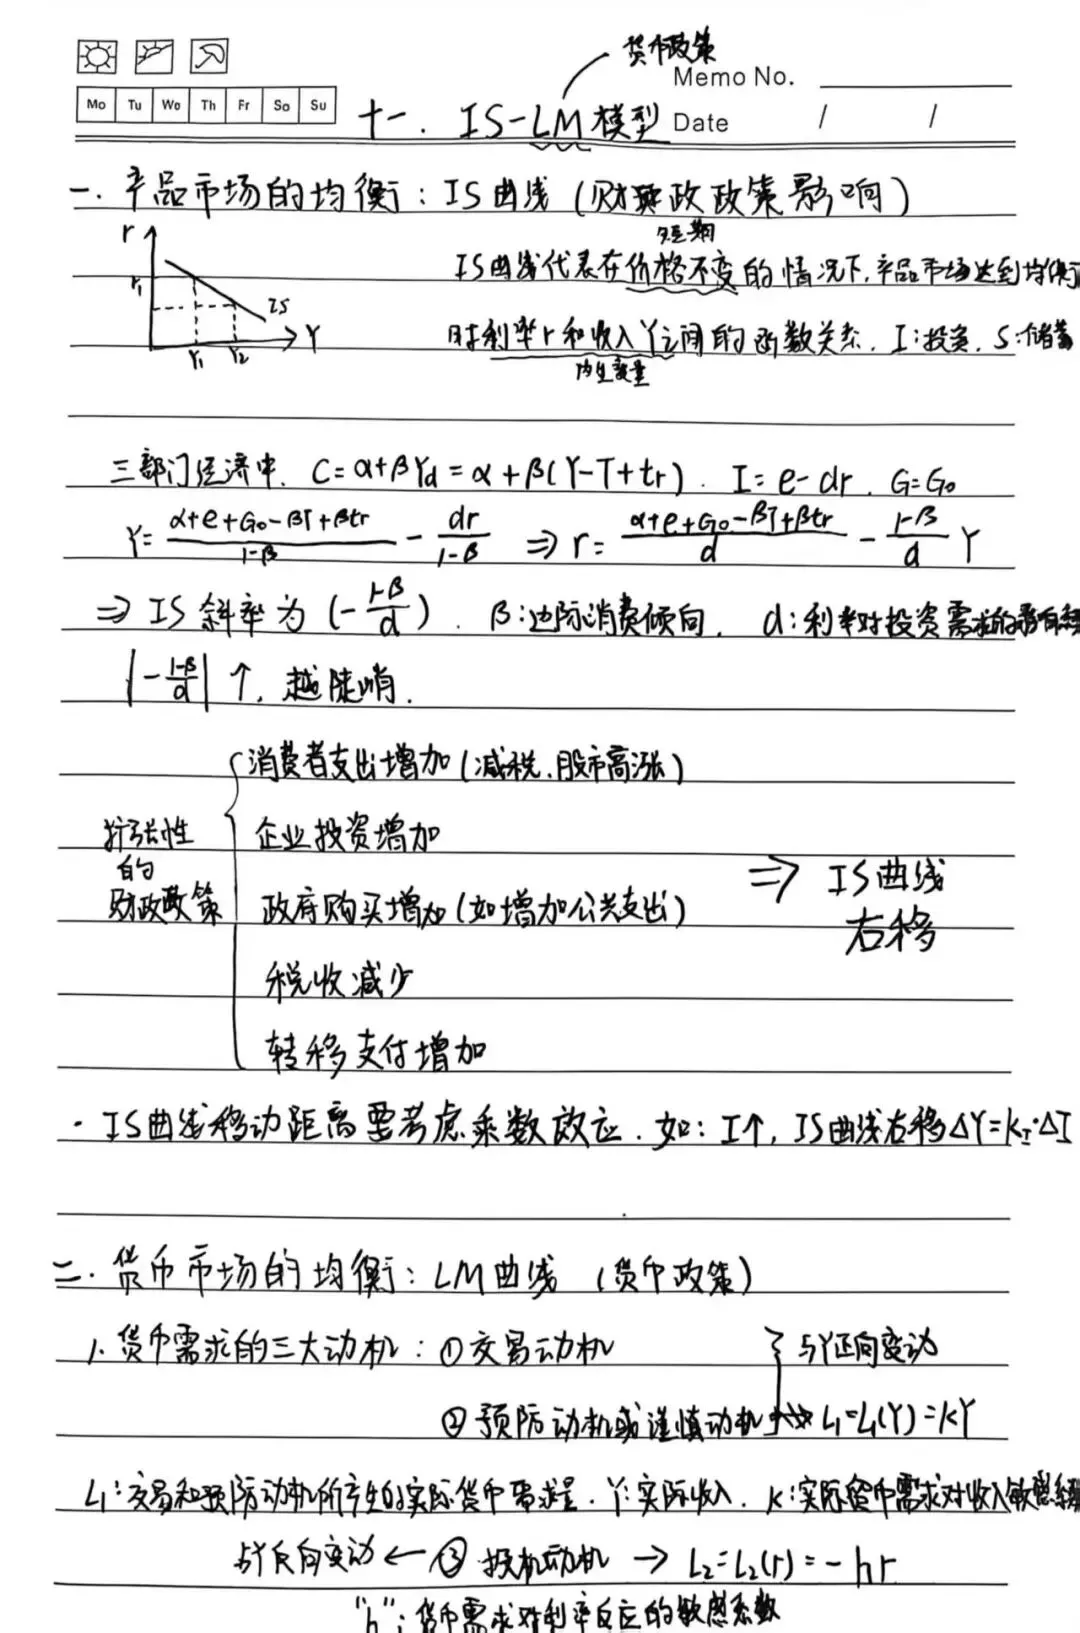 货币政策
Memo No.
Mo Tu We Th Fr Sa Su
十一. IS-LM模型 Date / /
一. 产品市场的均衡: IS曲线 (财政政策影响)
短期
r
r₁
IS
Y₁ Y₂ Y
IS曲线代表在价格不变的情况下,产品市场达到均衡
时利率r和收入Y之间的函数关系. I:投资. S:储蓄
内生变量
三部门经济中. C=α+βYd=α+β(Y-T+tr). I=e-dr. G=G₀
Y=(α+e+G₀-βT+βtr)/(1-β) - dr/(1-β) ⇒ r=(α+e+G₀-βT+βtr)/d - (1-β)/d Y
⇒ IS斜率为(-(1-β)/d). β:边际消费倾向. d:利率对投资需求的影响
|-(1-β)/d|↑, 越陡峭.
消费者支出增加(减税.股市高涨)
企业投资增加
扩张性的财政政策
政府购买增加(如增加公共支出)
⇒ IS曲线右移
税收减少
转移支付增加
· IS曲线移动距离要考虑乘数效应. 如: I↑, IS曲线右移ΔY=k_I·ΔI
二. 货币市场的均衡: LM曲线 (货币政策)
1. 货币需求的三大动机: ①交易动机 } 与Y正向变动
②预防动机或谨慎动机 → L₁=L₁(Y)=kY
L₁:交易和预防动机所产生的实际货币需求量. Y:实际收入. k:实际货币需求对收入敏感
与Y反向变动 ← ③投机动机 → L₂=L₂(r)=-hr
"h": 货币需求对利率反应的敏感系数